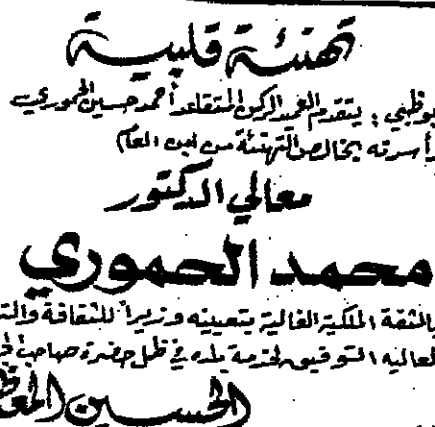 تهنئة قلبية
بوظبي : يتقدم العميد الركن المتقاعد أحمد حسين الحموري
وأسرته بخالص التهنئة من ابن العم
معالي الدكتور
محمد الحموري
بالثقة الملكية الغالية بتعيينه وزيراً للثقافة والت
لمعاليه التوفيق لخدمة بلده في ظل حضرة صاحب
الحسين المعظ